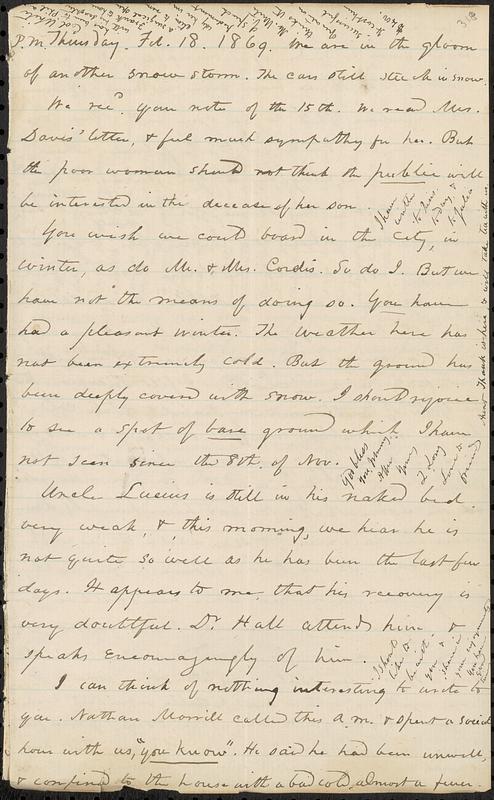 P.M. Thursday. Feb. 18. 1869. We are in the gloom
of another snow storm. The cars still stick in snow.
We rec^d. your note of the 15th. We read Mrs.
Davis' letter, & feel much sympathy for her. But
the poor woman should not think the public will
be interested in the decease of her son.
You wish we could board in the City, in
winter, as do Mr. & Mrs. Cordis. So do I. But we
have not the means of doing so. You have
had a pleasant winter. The weather here has
not been extremely cold. But the ground has
been deeply covered with snow. I should rejoice
to see a spot of bare ground which I have
not seen since the 8th. of Nov.
Uncle Lucius is still in his naked bed
very weak, &, this morning, we hear he is
not quite so well as he has been the last few
days. It appears to me, that his recovery is
very doubtful. Dr. Hall attends him &
speaks encouragingly of him.
I can think of nothing interesting to write to
you. Nathan Morrill called this a.m. & spent a social
hour with us, "you know". He said he had been unwell,
& confined to the house with a bad cold, almost a fever.
I have
to him
today, &
Julia
God bless
you
I should
like to
you &
$400.